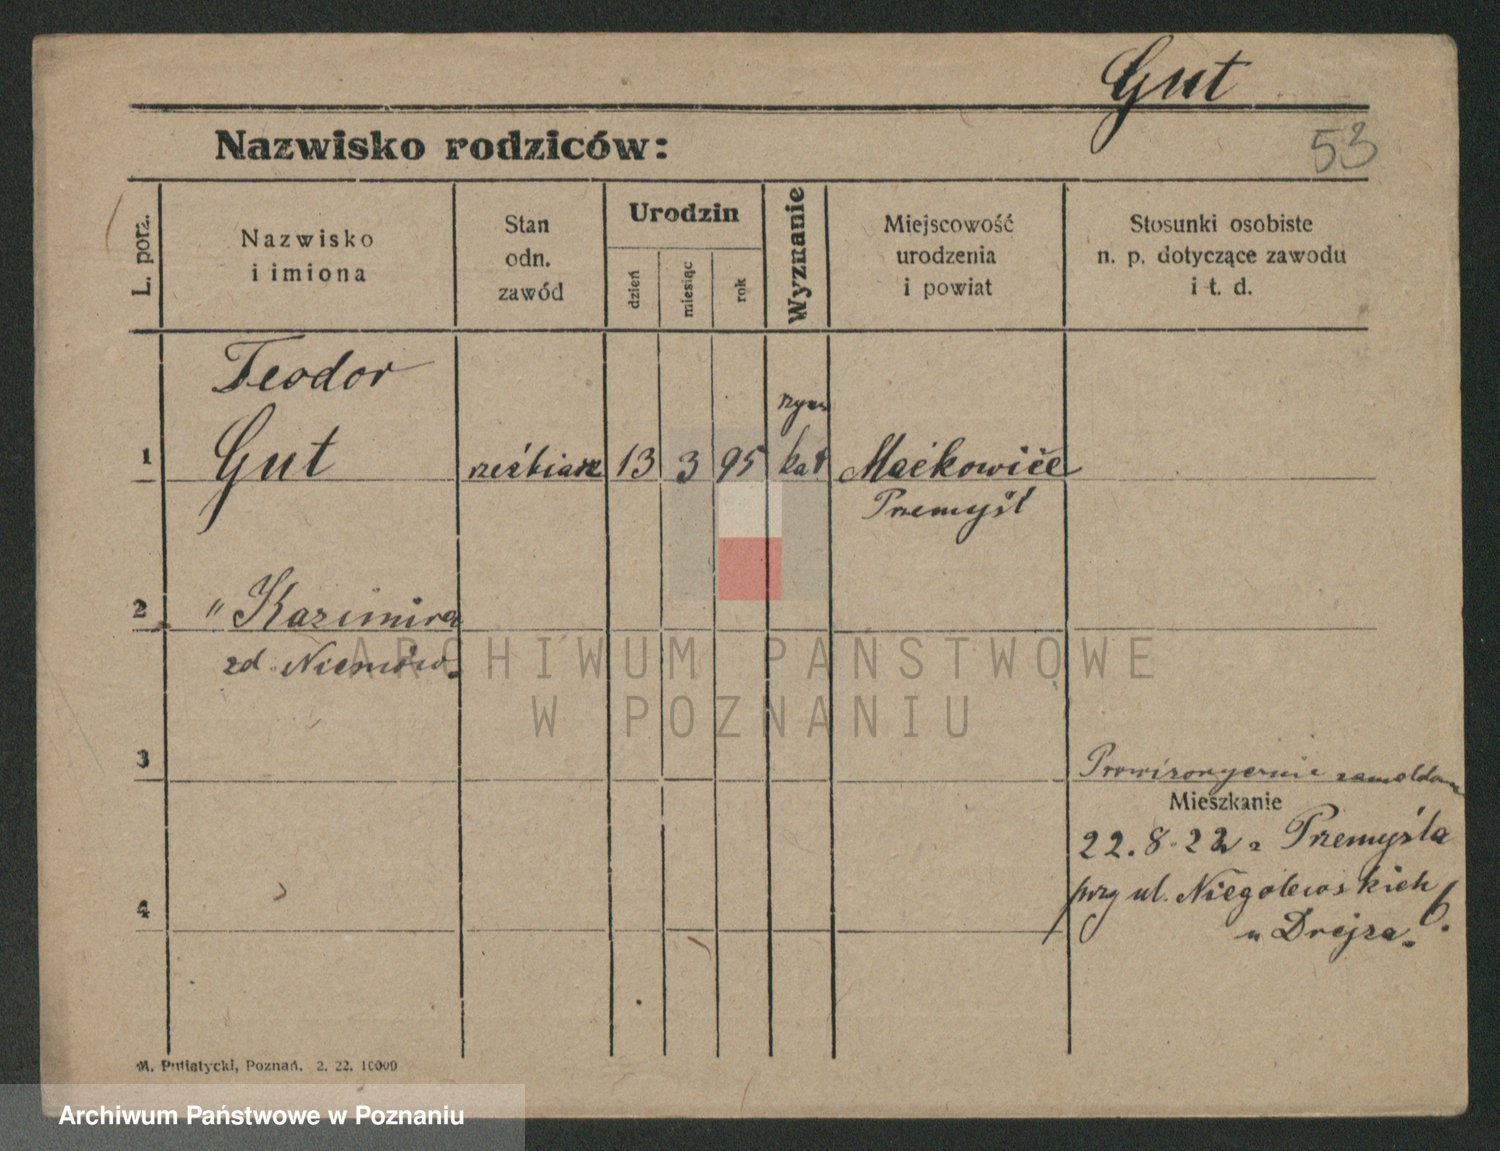 Gut
Nazwisko rodziców:
53
L. porz.
Nazwisko
i imiona
Stan
odn.
zawód
Urodzin
dzień
miesiąc
rok
Wyznanie
Miejscowość
urodzenia
i powiat
Stosunki osobiste
n. p. dotyczące zawodu
i t. d.
Teodor
rzym
1 Gut rzeźbiarz 13 3 95 kat Maćkowice
Przemyśl
2 " Kazimira
zd. Niemów.
ARCHIWUM PAŃSTWOWE
W POZNANIU
3
Prowizorycznie
Mieszkanie
22.8.22 z Przemyśla
przy ul. Niegolewskich 6.
u Drejza.
4
M. Putiatycki, Poznań. 2. 22. 10000
Archiwum Państwowe w Poznaniu